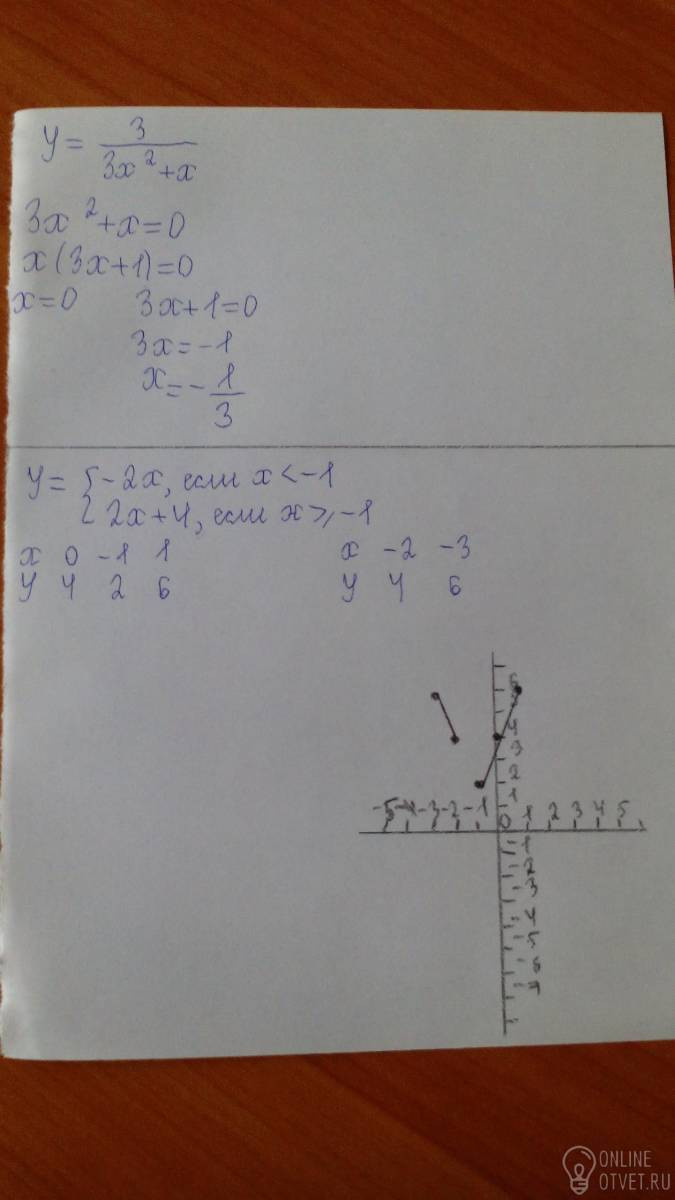 y = 3/(3x²+x)
3x²+x=0
x(3x+1)=0
x=0 3x+1=0
3x=-1
x=-1/3
y= { -2x, если x<-1
2x+4, если x≥-1
x 0 -1 1 x -2 -3
y 4 2 6 y 4 6
6
5
4
3
2
1
-5 -4 -3 -2 -1 0 1 2 3 4 5
-1
-2
-3
-4
-5
-6
-7
ONLINE
OTVET.RU